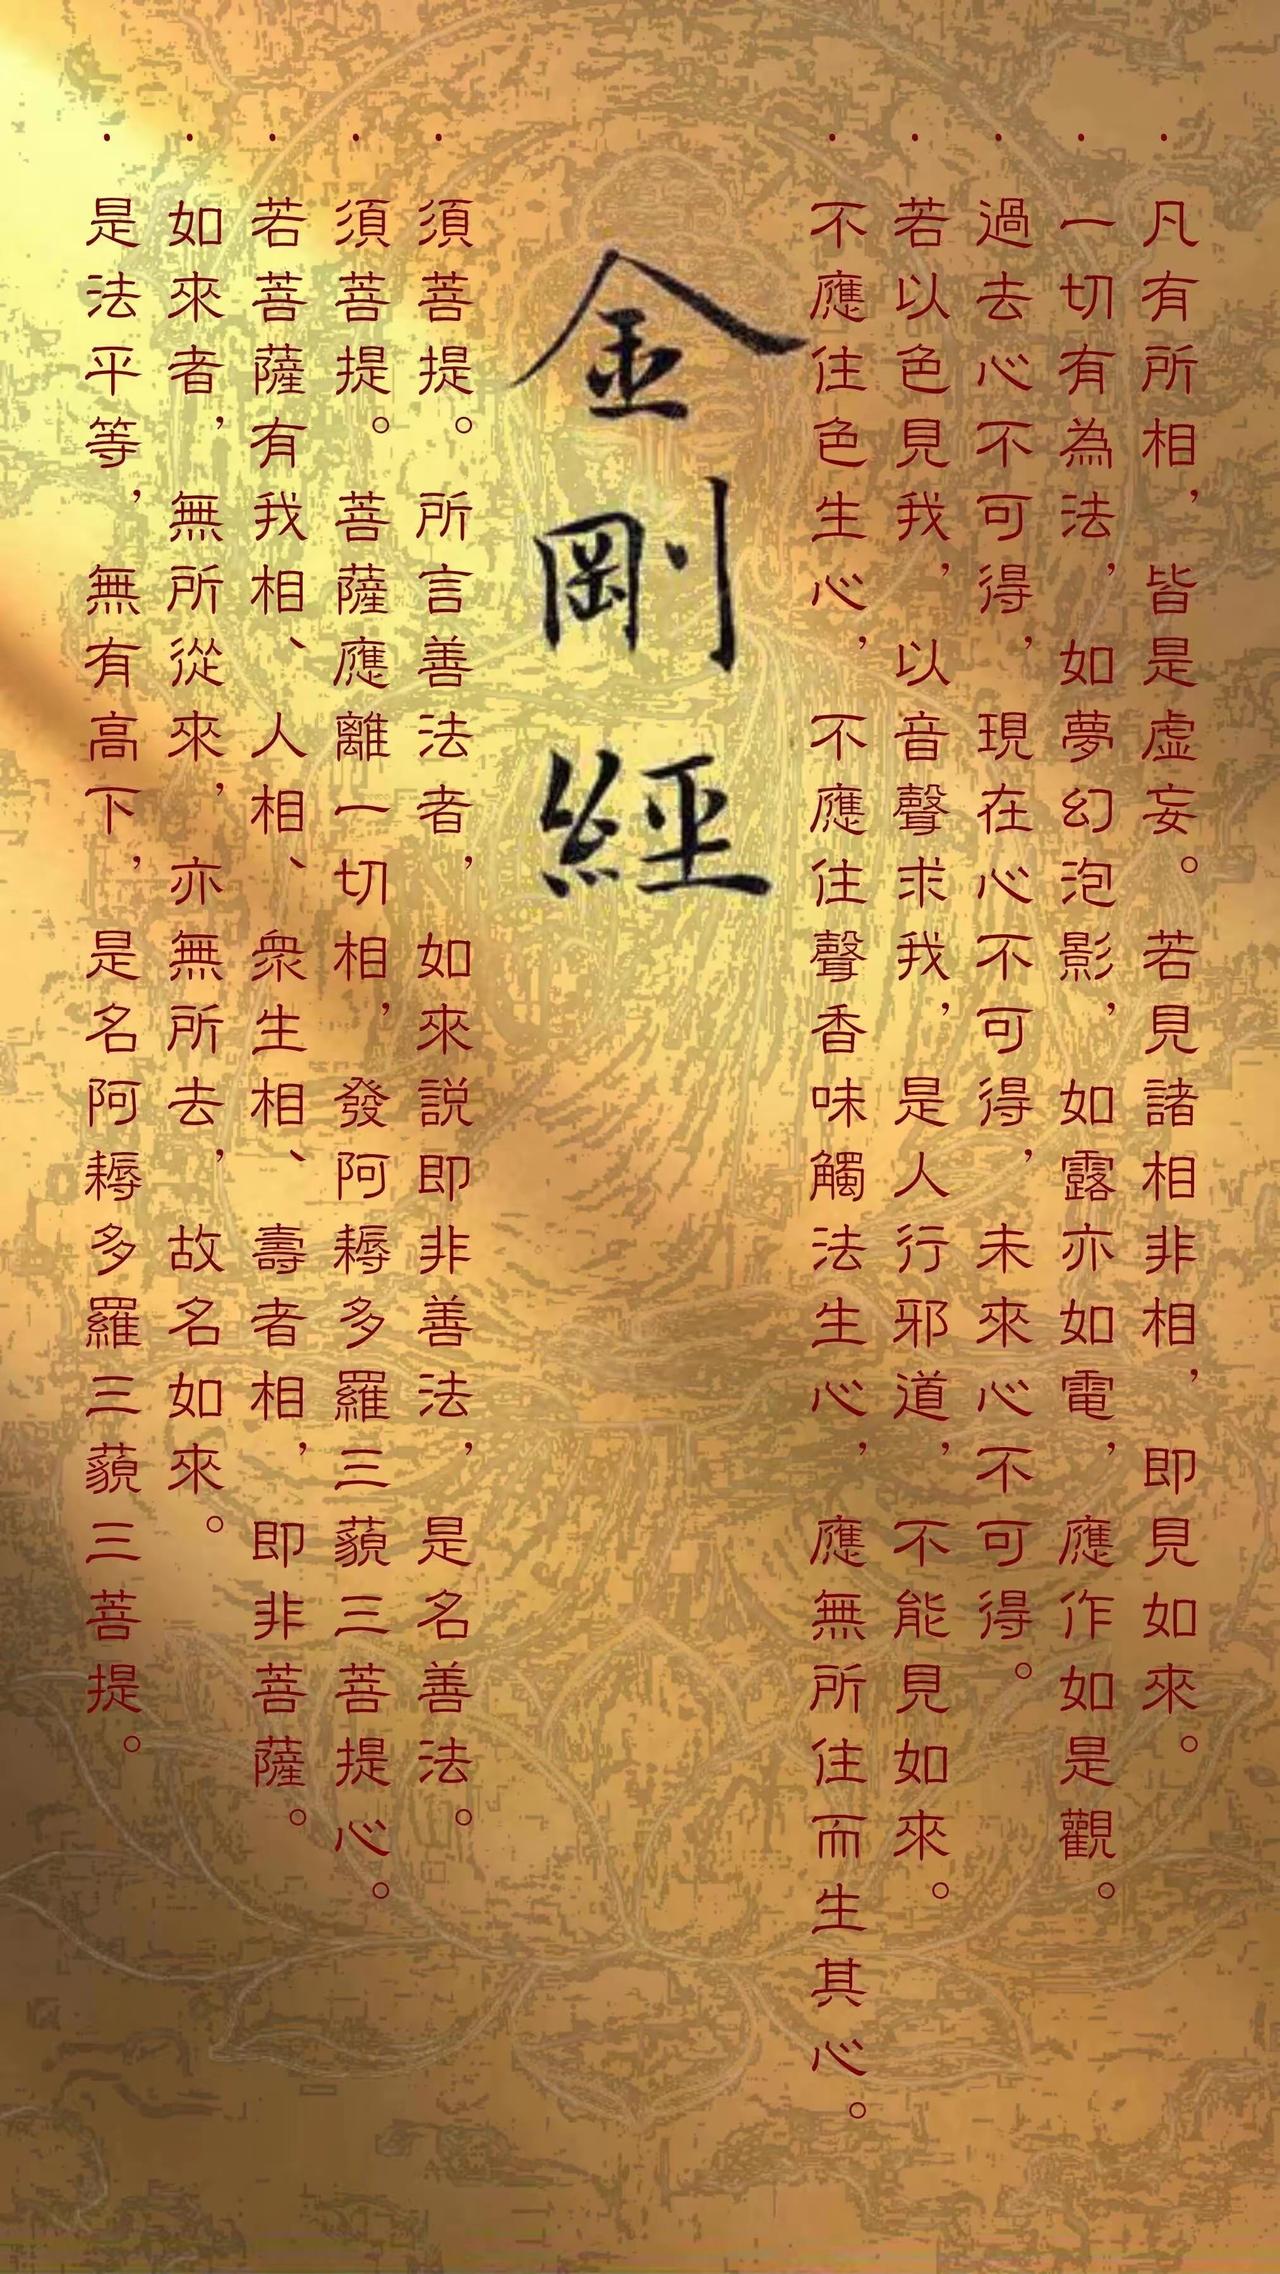 ·凡有所相，皆是虛妄。若見諸相非相，即見如來。
·一切有為法，如夢幻泡影，如露亦如電，應作如是觀。
·過去心不可得，現在心不可得，未來心不可得。
·若以色見我，以音聲求我，是人行邪道，不能見如來。
·不應住色生心，不應住聲香味觸法生心，應無所住而生其心。
金剛經
·須菩提。所言善法者，如來説即非善法，是名善法。
·須菩提。菩薩應離一切相，發阿耨多羅三藐三菩提心。
·若菩薩有我相、人相、衆生相、壽者相，即非菩薩。
·如來者，無所從來，亦無所去，故名如來。
·是法平等，無有高下，是名阿耨多羅三藐三菩提。